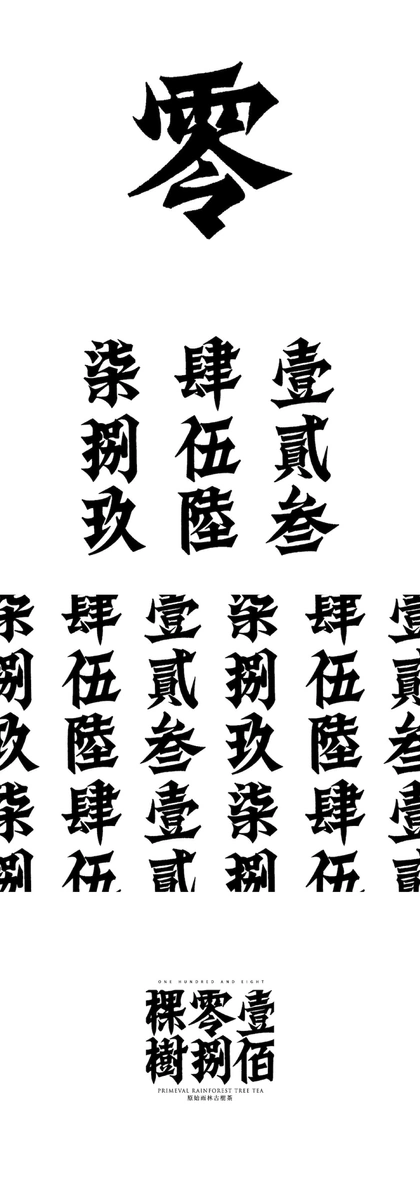 零
壹貳叁
肆伍陸
柒捌玖
壹貳叁壹貳
肆伍陸肆伍
柒捌玖柒捌
壹貳叁壹貳
肆伍陸肆伍
柒捌玖柒捌
ONE HUNDRED AND EIGHT
壹佰
零捌
棵樹
PRIMEVAL RAINFOREST TREE TEA
原始雨林古樹茶